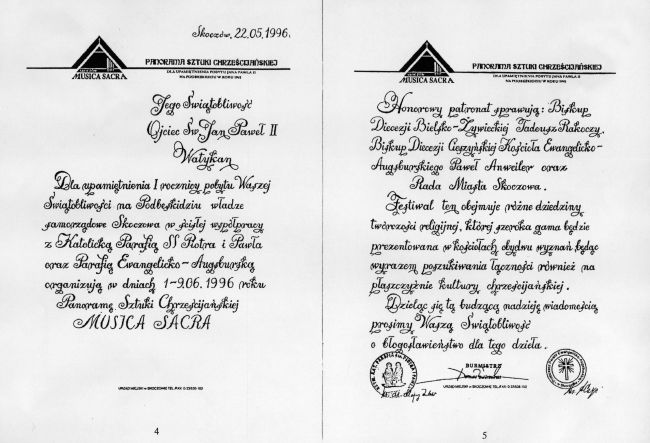 Skoczów, 22.05.1996.
MUSICA SACRA
PANORAMA SZTUKI CHRZEŚCIJAŃSKIEJ
DLA UPAMIĘTNIENIA POBYTU JANA PAWŁA II
NA PODBESKIDZIU W ROKU 1995
Jego Świątobliwość
Ojciec Św. Jan Paweł II
Watykan
Dla upamiętnienia I rocznicy pobytu Waszej
Świątobliwości na Podbeskidziu władze
samorządowe Skoczowa w ścisłej współpracy
z Katolicką Parafią SS Piotra i Pawła
oraz Parafią Ewangelicko-Augsburską
organizują w dniach 1-9.06.1996 roku
Panoramę Sztuki Chrześcijańskiej
MUSICA SACRA
URZĄD MIEJSKI w SKOCZOWIE TEL./FAX
4
MUSICA SACRA
PANORAMA SZTUKI CHRZEŚCIJAŃSKIEJ
DLA UPAMIĘTNIENIA POBYTU JANA PAWŁA II
NA PODBESKIDZIU W ROKU 1995
Honorowy patronat sprawują: Biskup
Diecezji Bielsko-Żywieckiej Tadeusz Rakoczy,
Biskup Diecezji Cieszyńskiej Kościoła Ewangelicko-
Augsburskiego Paweł Anweiler oraz
Rada Miasta Skoczowa.
Festiwal ten obejmuje różne dziedziny
twórczości religijnej, której szeroka gama będzie
prezentowana w kościołach obydwu wyznań będąc
wyrazem poszukiwania łączności również na
płaszczyźnie kultury chrześcijańskiej.
Dzieląc się tą budzącą nadzieję wiadomością
prosimy Waszą Świątobliwość
o błogosławieństwo dla tego dzieła.
BURMISTRZ
URZĄD MIEJSKI w SKOCZOWIE TEL./FAX
5